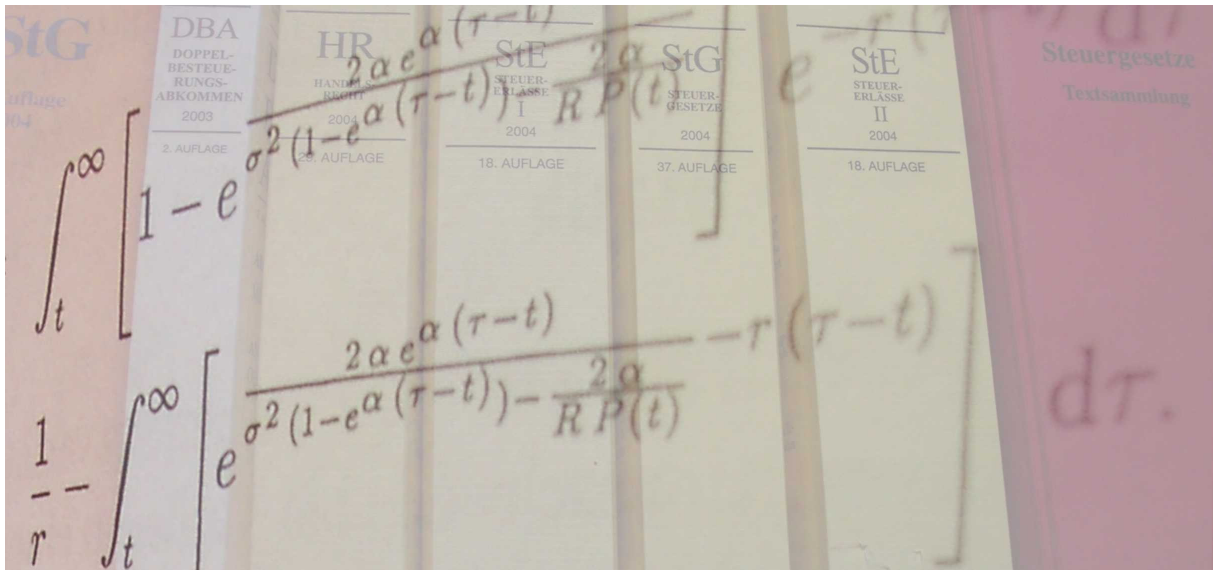 StG
uflage
04
DBA
DOPPEL-
BESTEUE-
RUNGS-
ABKOMMEN
2003
2. AUFLAGE
HR
HANDELS-
RECHT
2004
29. AUFLAGE
StE
STEUER-
ERLÄSSE
I
2004
18. AUFLAGE
StG
STEUER-
GESETZE
2004
37. AUFLAGE
StE
STEUER-
ERLÄSSE
II
2004
18. AUFLAGE
Steuergesetze
Textsammlung
∫_t^∞ [1 − e^{\frac{2 α e^{α (τ−t)}}{σ^2 (1−e^{α (τ−t)}) − \frac{2 α}{R P(t)}}}] e^{−r (τ−t)} dτ
\frac{1}{r} − ∫_t^∞ [e^{\frac{2 α e^{α (τ−t)}}{σ^2 (1−e^{α (τ−t)}) − \frac{2 α}{R P(t)}} − r (τ−t)}] dτ.